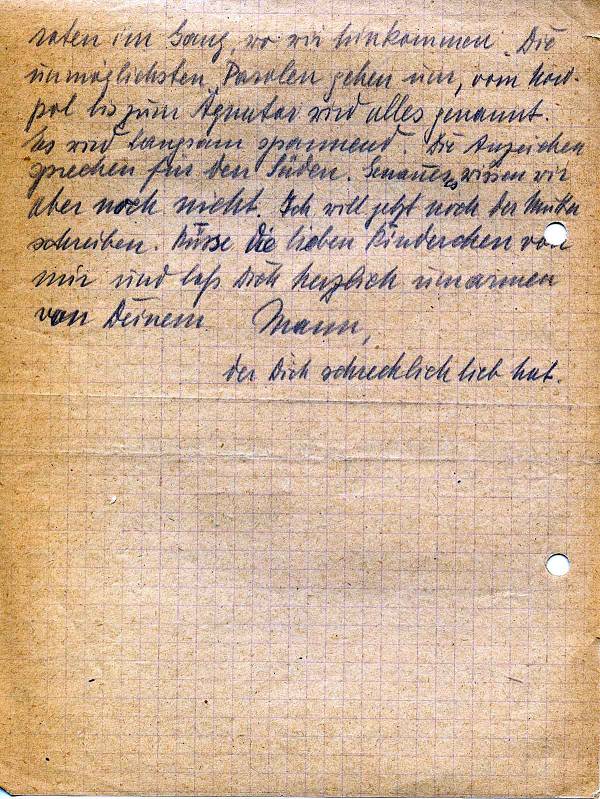 raten im Gang, wo wir hinkommen. Die
unmöglichsten Parolen gehen um, vom Nord-
pol bis zum Äquator wird alles genannt.
Es wird langsam spannend. Die Anzeichen
sprechen für den Süden. Genaues wissen wir
aber noch nicht. Ich will jetzt noch der Mutter
schreiben. Küsse die lieben Kinderchen von
mir und laß Dich herzlich umarmen
von Deinem Mann,
der Dich schrecklich lieb hat.